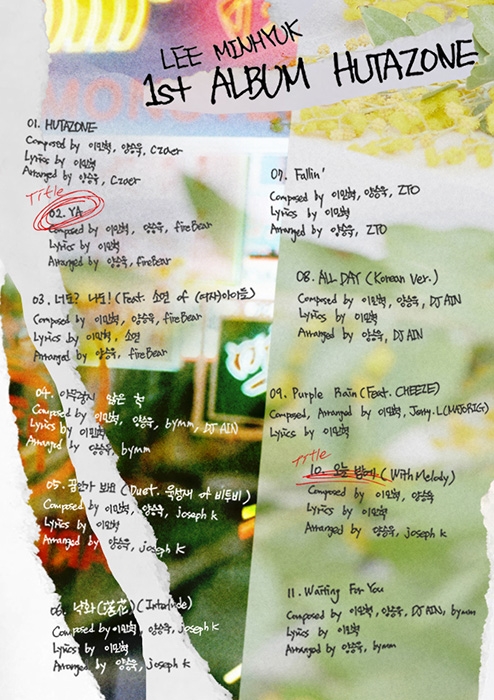 LEE MINHYUK
1st ALBUM HUTAZONE
01. HUTAZONE
Composed by 이민혁, 양승욱, Czaer
Lyrics by 이민혁
Arranged by 양승욱, Czaer
Title
02. YA
Composed by 이민혁, 양승욱, fireBear
Lyrics by 이민혁
Arranged by 양승욱, fireBear
03. 너도? 나도! (Feat. 소연 of (여자)아이들)
Composed by 이민혁, 양승욱, fireBear
Lyrics by 이민혁, 소연
Arranged by 양승욱, fireBear
04. 아무렇지 않은 척
Composed by 이민혁, 양승욱, bymm, DJ AIN
Lyrics by 이민혁
Arranged by 양승욱, bymm
05. 꿈인가 봐요 (Duet. 육성재 of 비투비)
Composed by 이민혁, 양승욱, joseph K
Lyrics by 이민혁
Arranged by 양승욱, joseph K
06. 낙화(落花) (Interlude)
Composed by 이민혁, 양승욱, joseph K
Lyrics by 이민혁
Arranged by 양승욱, joseph K
07. Fallin'
Composed by 이민혁, 양승욱, ZTO
Lyrics by 이민혁
Arranged by 양승욱, ZTO
08. ALL DAY (Korean Ver.)
Composed by 이민혁, 양승욱, DJ AIN
Lyrics by 이민혁
Arranged by 양승욱, DJ AIN
09. Purple Rain (Feat. CHEEZE)
Composed, Arranged by 이민혁, Jerry.L(MAJORIG)
Lyrics by 이민혁
Title
10. 오늘 밤에 (With Melody)
Composed by 이민혁, 양승욱
Lyrics by 이민혁
Arranged by 양승욱, joseph K
11. Waiting For You
Composed by 이민혁, 양승욱, DJ AIN, bymm
Lyrics by 이민혁
Arranged by 양승욱, bymm